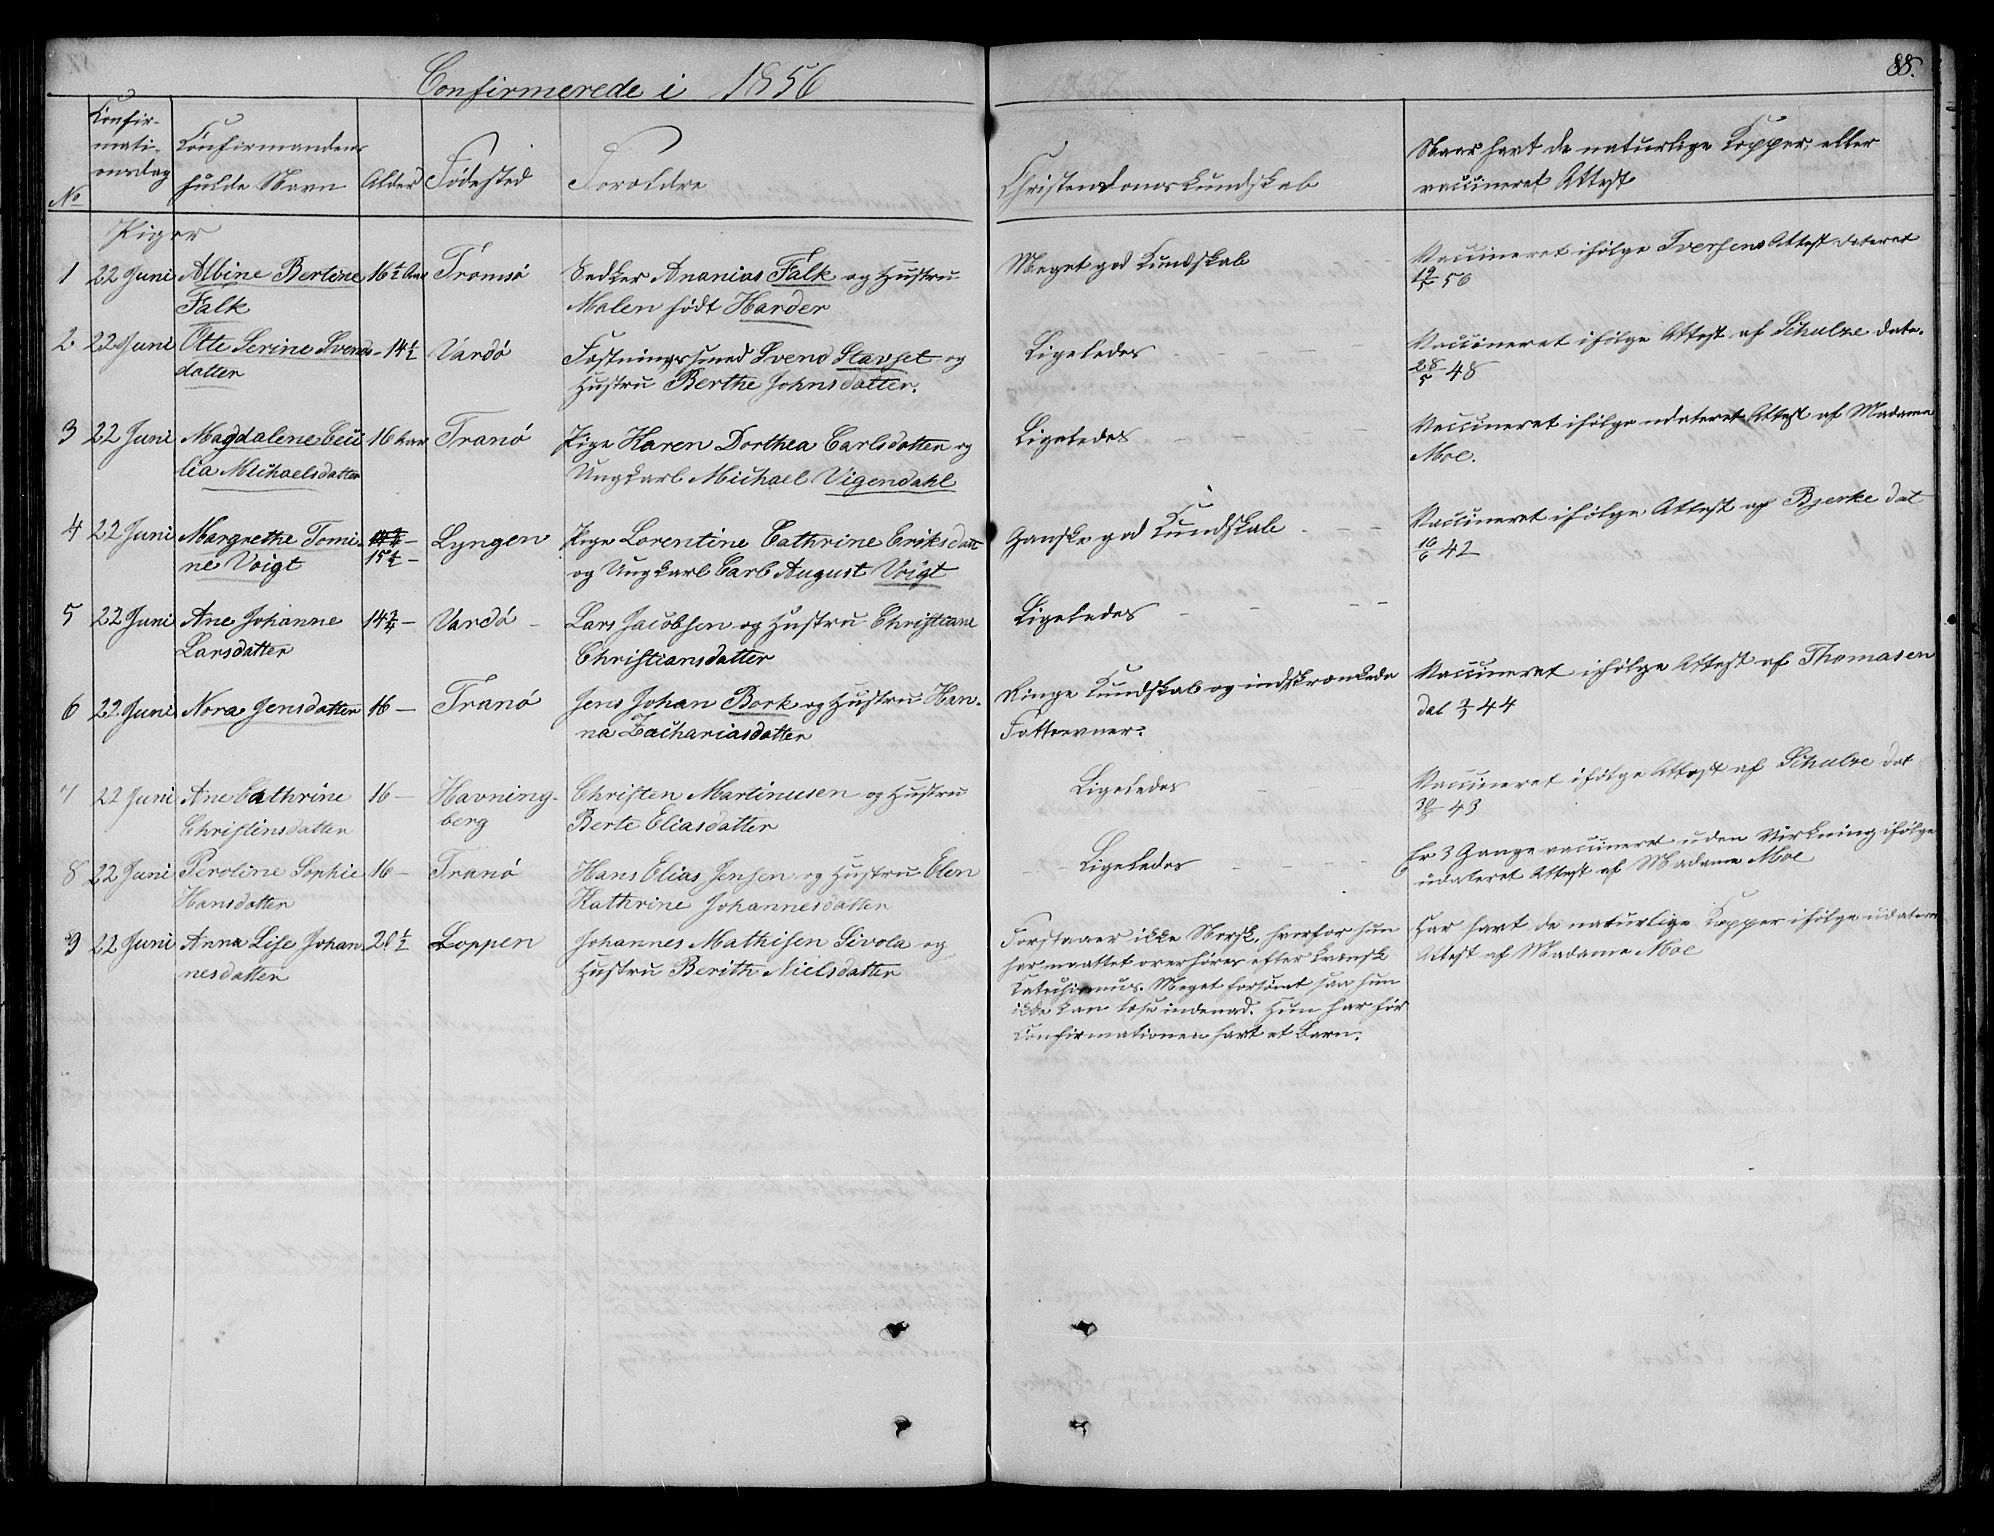 88.
Confirmerede i 1856
No
Konfir-
mati-
onsdag
Konfirmandens
fulde Navn
Alder
Fødested
Forældre
Christendomskundskab
Naar havt de naturlige Kopper, eller
vaccineret Attest
Piger
1 22 Juni Albine Bertine 16½ Aar Tromsø Ananias Falk og Hustru Meget god Kundskab Vaccineret ifølge Iversens Attest dateret
Falk Malen født Harder 56
2 22 Juni Otte Serine Svends- 14½ Vardø Fæstningssmed Svend Stavset og Ligeledes Vaccineret ifølge Attest af Schulze date.
datter Hustru Berthe Johnsdatter. 28/5 48
3 22 Juni Magdalene Ceci 16 Aar Tranø Pige Karen Dorthea Carlsdatter og Ligeledes Vaccineret ifølge udateret Attest af Madame
lia Michaelsdatter Ungkarl Michael Vigendahl Moe.
4 22 Juni Margrethe Tomi- 15½ - Lyngen Pige Lorentine Cathrine Eriksdatt Ganske god Kundskab Vaccineret ifølge Attest af Bjerke dat
ne Voigt og Ungkarl Carl August Voigt 16/6 42
5 22 Juni Ane Johanne 14¾ - Vardø - Lars Jacobsen og Hustru Christiane Ligeledes
Larsdatter Christiansdatter
6 22 Juni Nora Jensdatter 16 - Tranø Jens Johan Bork og Hustru Han- Ringe Kundskab og indskrænkede Vaccineret ifølge Attest af Thomasen
na Zachariasdatter Fatteevner. dat 44
7 22 Juni Ane Cathrine 16 - Havning- Christen Martinusen og Hustru Ligeledes Vaccineret ifølge Attest af Schulze dat
Christinsdatter berg Berte Eliasdatter 43
8 22 Juni Peroline Sophie 16 - Tranø Hans Elias Jensen og Hustru Elen Ligeledes Er 3 Gange vaccineret uden Virkning ifølge
Hansdatter Kathrine Johannesdatter udateret Attest af Madame Moe
9 22 Juni Anna Lise Johan Loppen Johannes Mathisen Sivola og Forstaaer ikke Norsk, hvorfor hun Har havt de naturlige Kopper ifølge udateret
nesdatter Hustru Berith Nielsdatter har maattet overhøres efter kvænsk Attest af Madame Moe
Katechismus. Meget forsømt saa hun
ikke kan læse indenad. Hun har før
Konfirmationen havt et Barn.